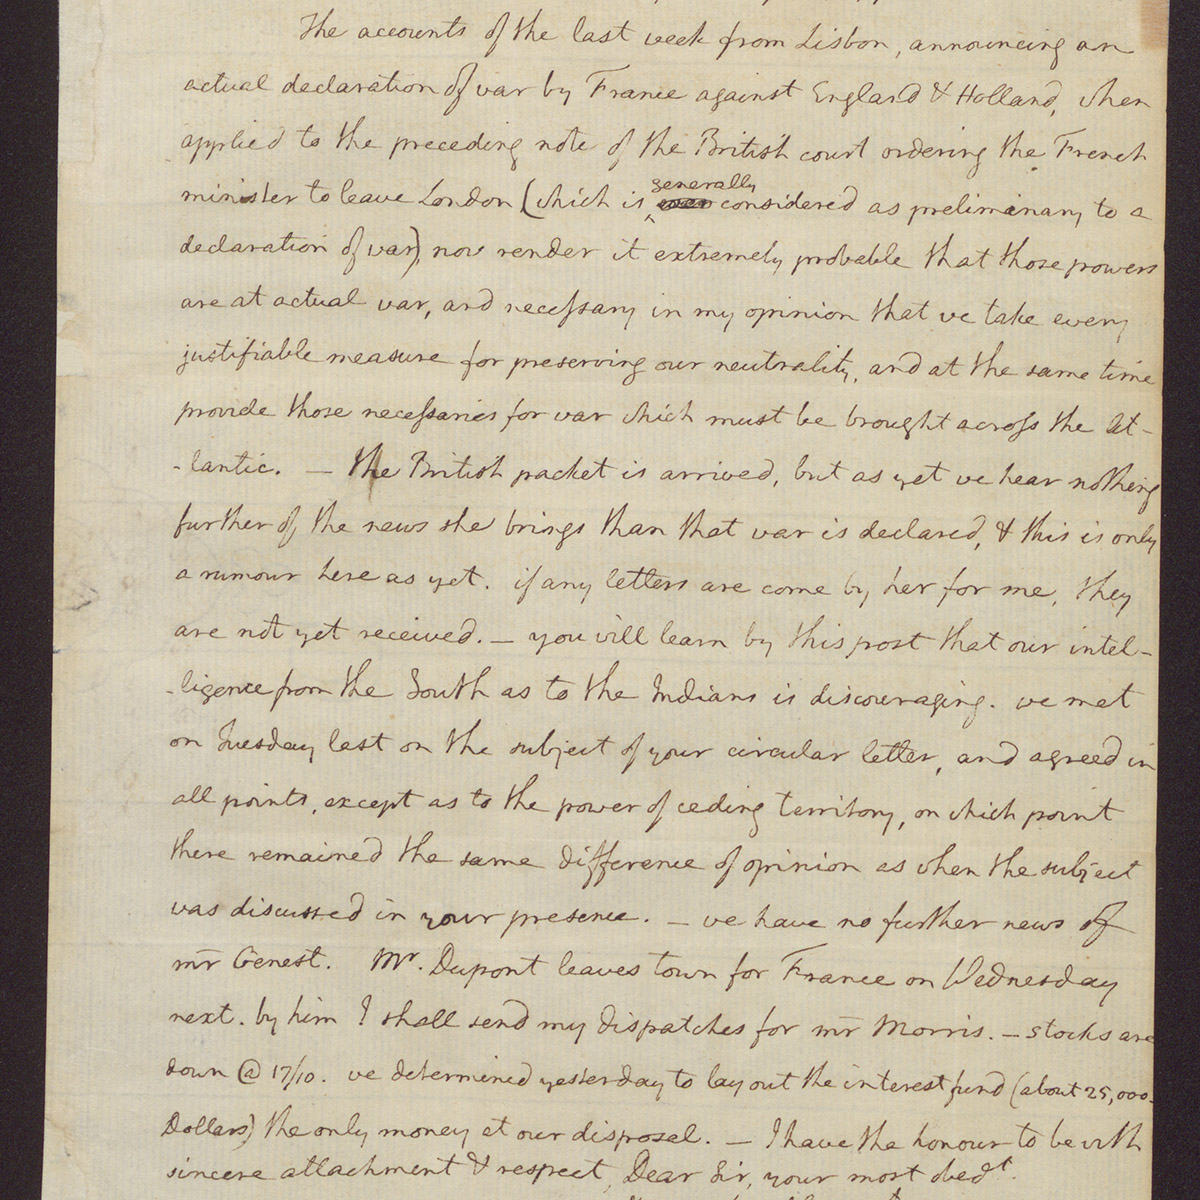 The accounts of the last week from Lisbon, announcing an
actual declaration of war by France against England & Holland, when
applied to the preceding note of the British court ordering the French
minister to leave London (which is generally considered as preliminary to a
declaration of war), now render it extremely probable that those powers
are at actual war, and necessary in my opinion that we take every
justifiable measure for preserving our neutrality, and at the same time
provide those necessaries for war which must be brought across the At-
-lantic. — the British packet is arrived, but as yet we hear nothing
further of the news she brings than that war is declared, & this is only
a rumour here as yet. if any letters are come by her for me, they
are not yet received. — you will learn by this post that our intel-
-ligence from the South as to the Indians is discouraging. we met
on Tuesday last on the subject of your circular letter, and agreed in
all points, except as to the power of ceding territory, on which point
there remained the same difference of opinion as when the subject
was discussed in your presence. — we have no further news of
mr Genest. Mr. Dupont leaves town for France on Wednesday
next. by him I shall send my dispatches for mr Morris. — stocks are
down @ 17/10. we determined yesterday to lay out the interest fund (about 25,000.
Dollars) the only money at our disposal. — I have the honour to be with
sincere attachment & respect, Dear Sir, your most obedt.